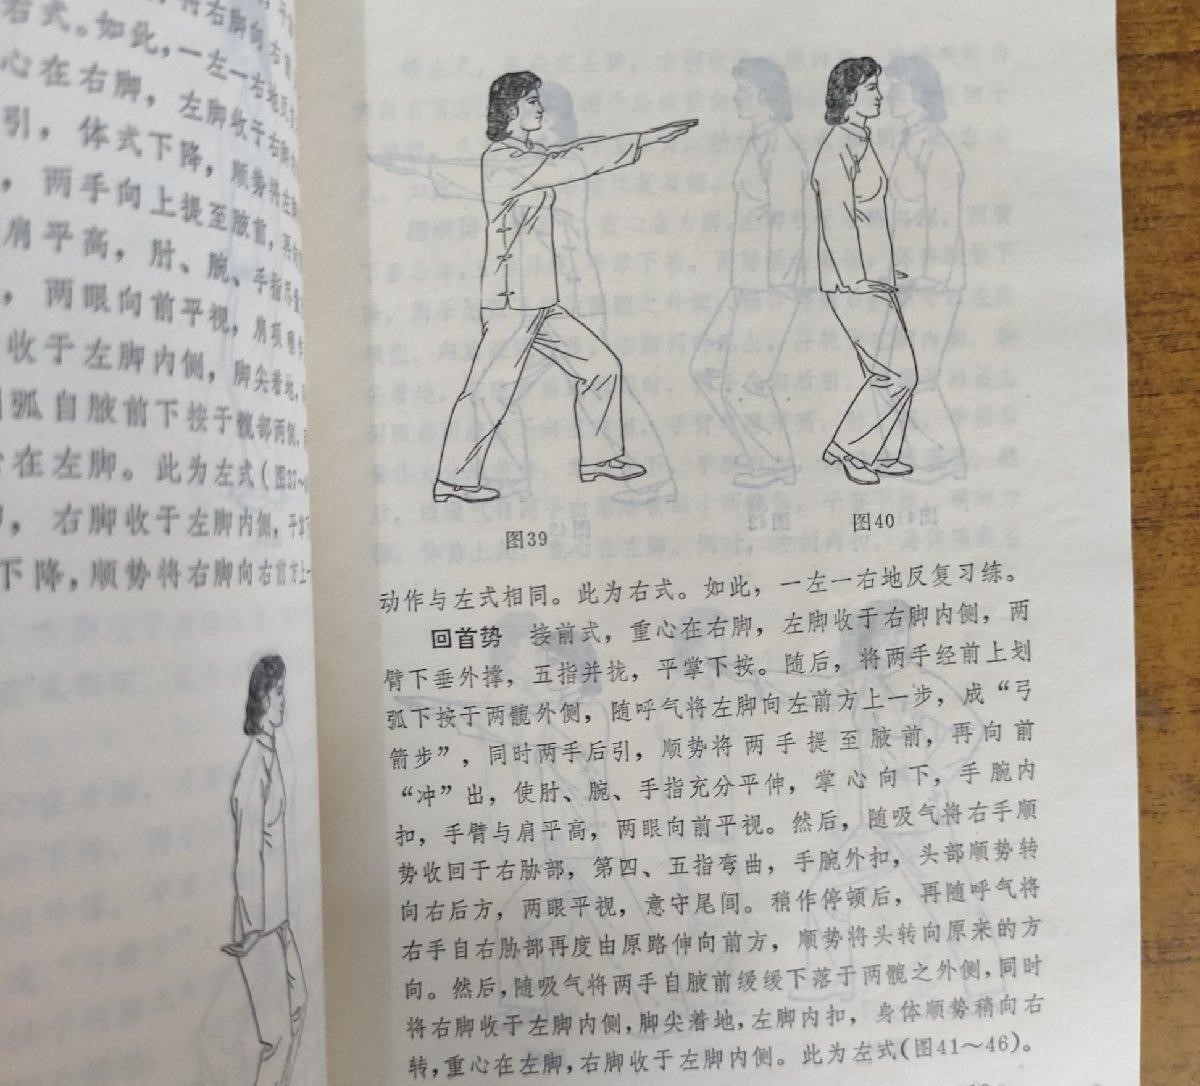 右式。如此，一左一右地反
心在右脚，左脚收于右脚
引，体式下降，顺势将左脚
，两手向上提至腋前，再向
肩平高，肘、腕、手指尽量
，两眼向前平视，肩项稍
收于左脚内侧，脚尖着地，
弧自腋前下按于髋部两侧，
在左脚。此为左式（图37～
，右脚收于左脚内侧，平掌下
下降，顺势将右脚向右前方上一
图39
图40
动作与左式相同。此为右式。如此，一左一右地反复习练。
回首势 接前式，重心在右脚，左脚收于右脚内侧，两
臂下垂外撑，五指并拢，平掌下按。随后，将两手经前上划
弧下按于两髋外侧，随呼气将左脚向左前方上一步，成“弓
箭步”，同时两手后引，顺势将两手提至腋前，再向前
“冲”出，使肘、腕、手指充分平伸，掌心向下，手腕内
扣，手臂与肩平高，两眼向前平视。然后，随吸气将右手顺
势收回于右胁部，第四、五指弯曲，手腕外扣，头部顺势转
向右后方，两眼平视，意守尾闾。稍作停顿后，再随呼气将
右手自右胁部再度由原路伸向前方，顺势将头转向原来的方
向。然后，随吸气将两手自腋前缓缓下落于两髋之外侧，同时
将右脚收于左脚内侧，脚尖着地，左脚内扣，身体顺势稍向右
转，重心在左脚，右脚收于左脚内侧。此为左式（图41～46）。